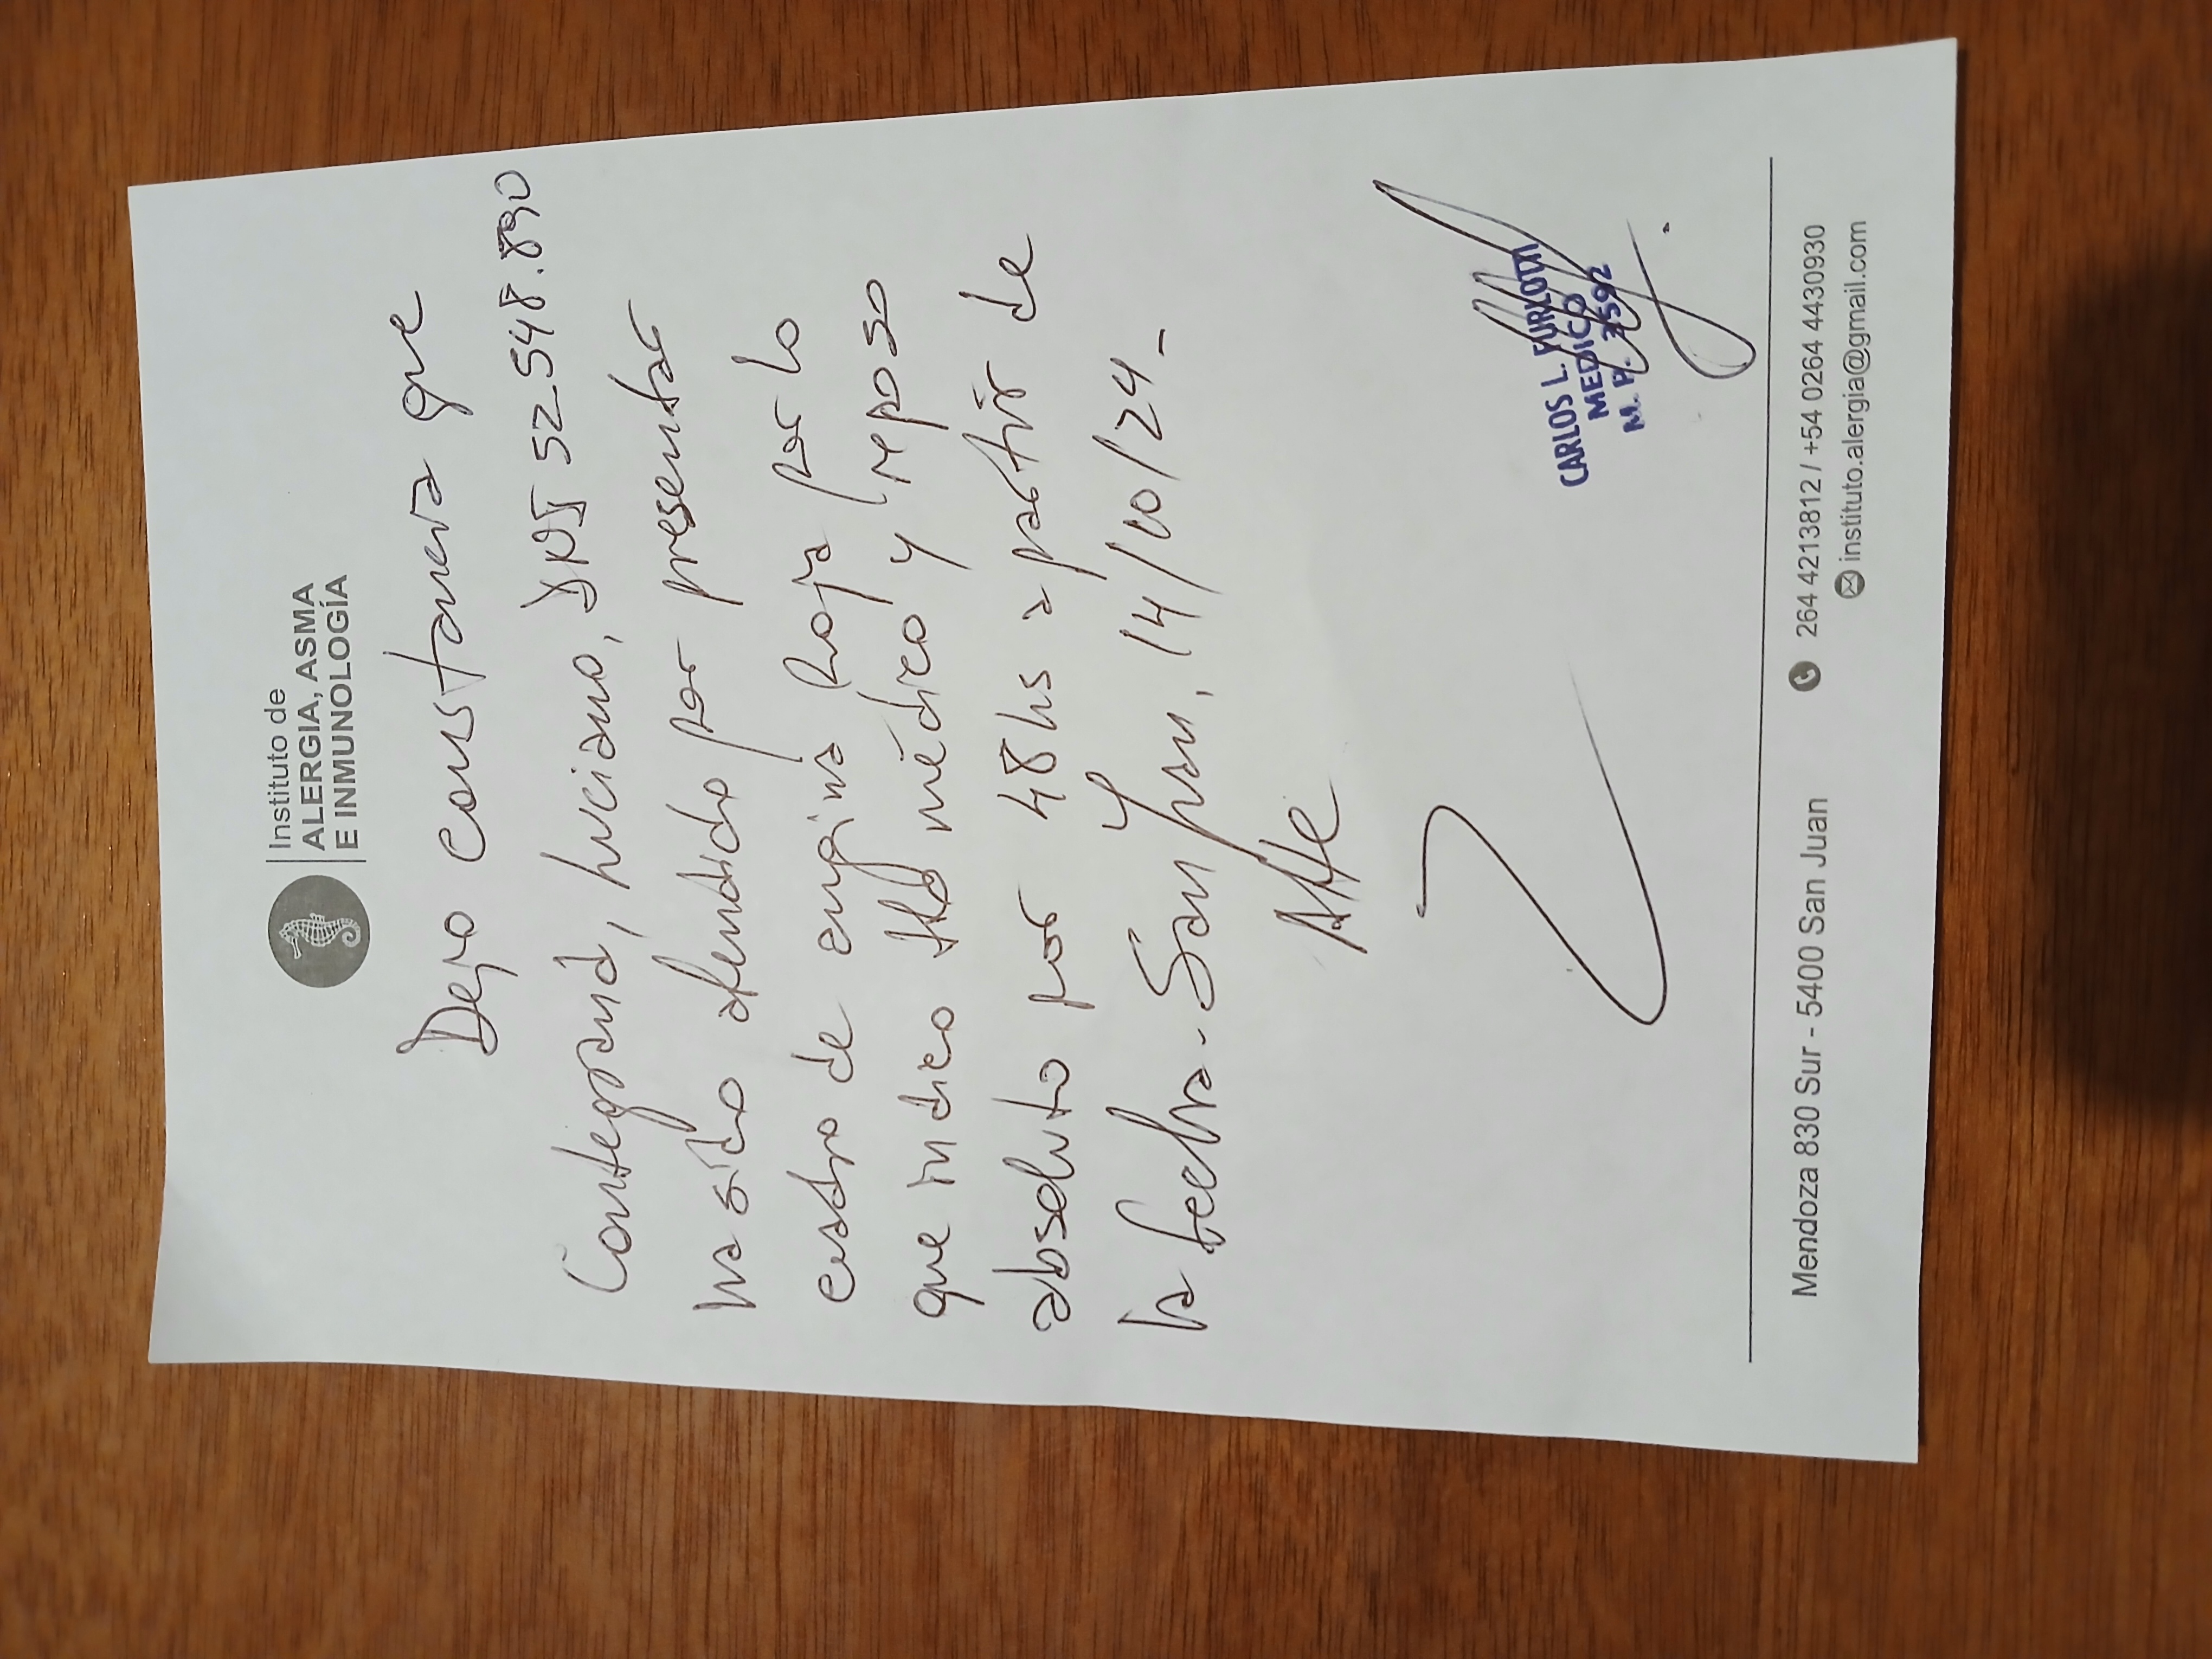 Instituto de
ALERGIA, ASMA
E INMUNOLOGÍA
Dejo constancia que
Contegrand, Luciano, DNI 52.548.890
ha sido atendido por presentar
cuadro de engina roja por lo
que indico tto médico y reposo
absoluto por 48hs a partir de
la fecha. San Juan, 14/10/24_
Atte
CARLOS L. FURLOTTI
MEDICO
M. P. 3592
Mendoza 830 Sur - 5400 San Juan
264 4213812 / +54 0264 4430930
instituto.alergia@gmail.com